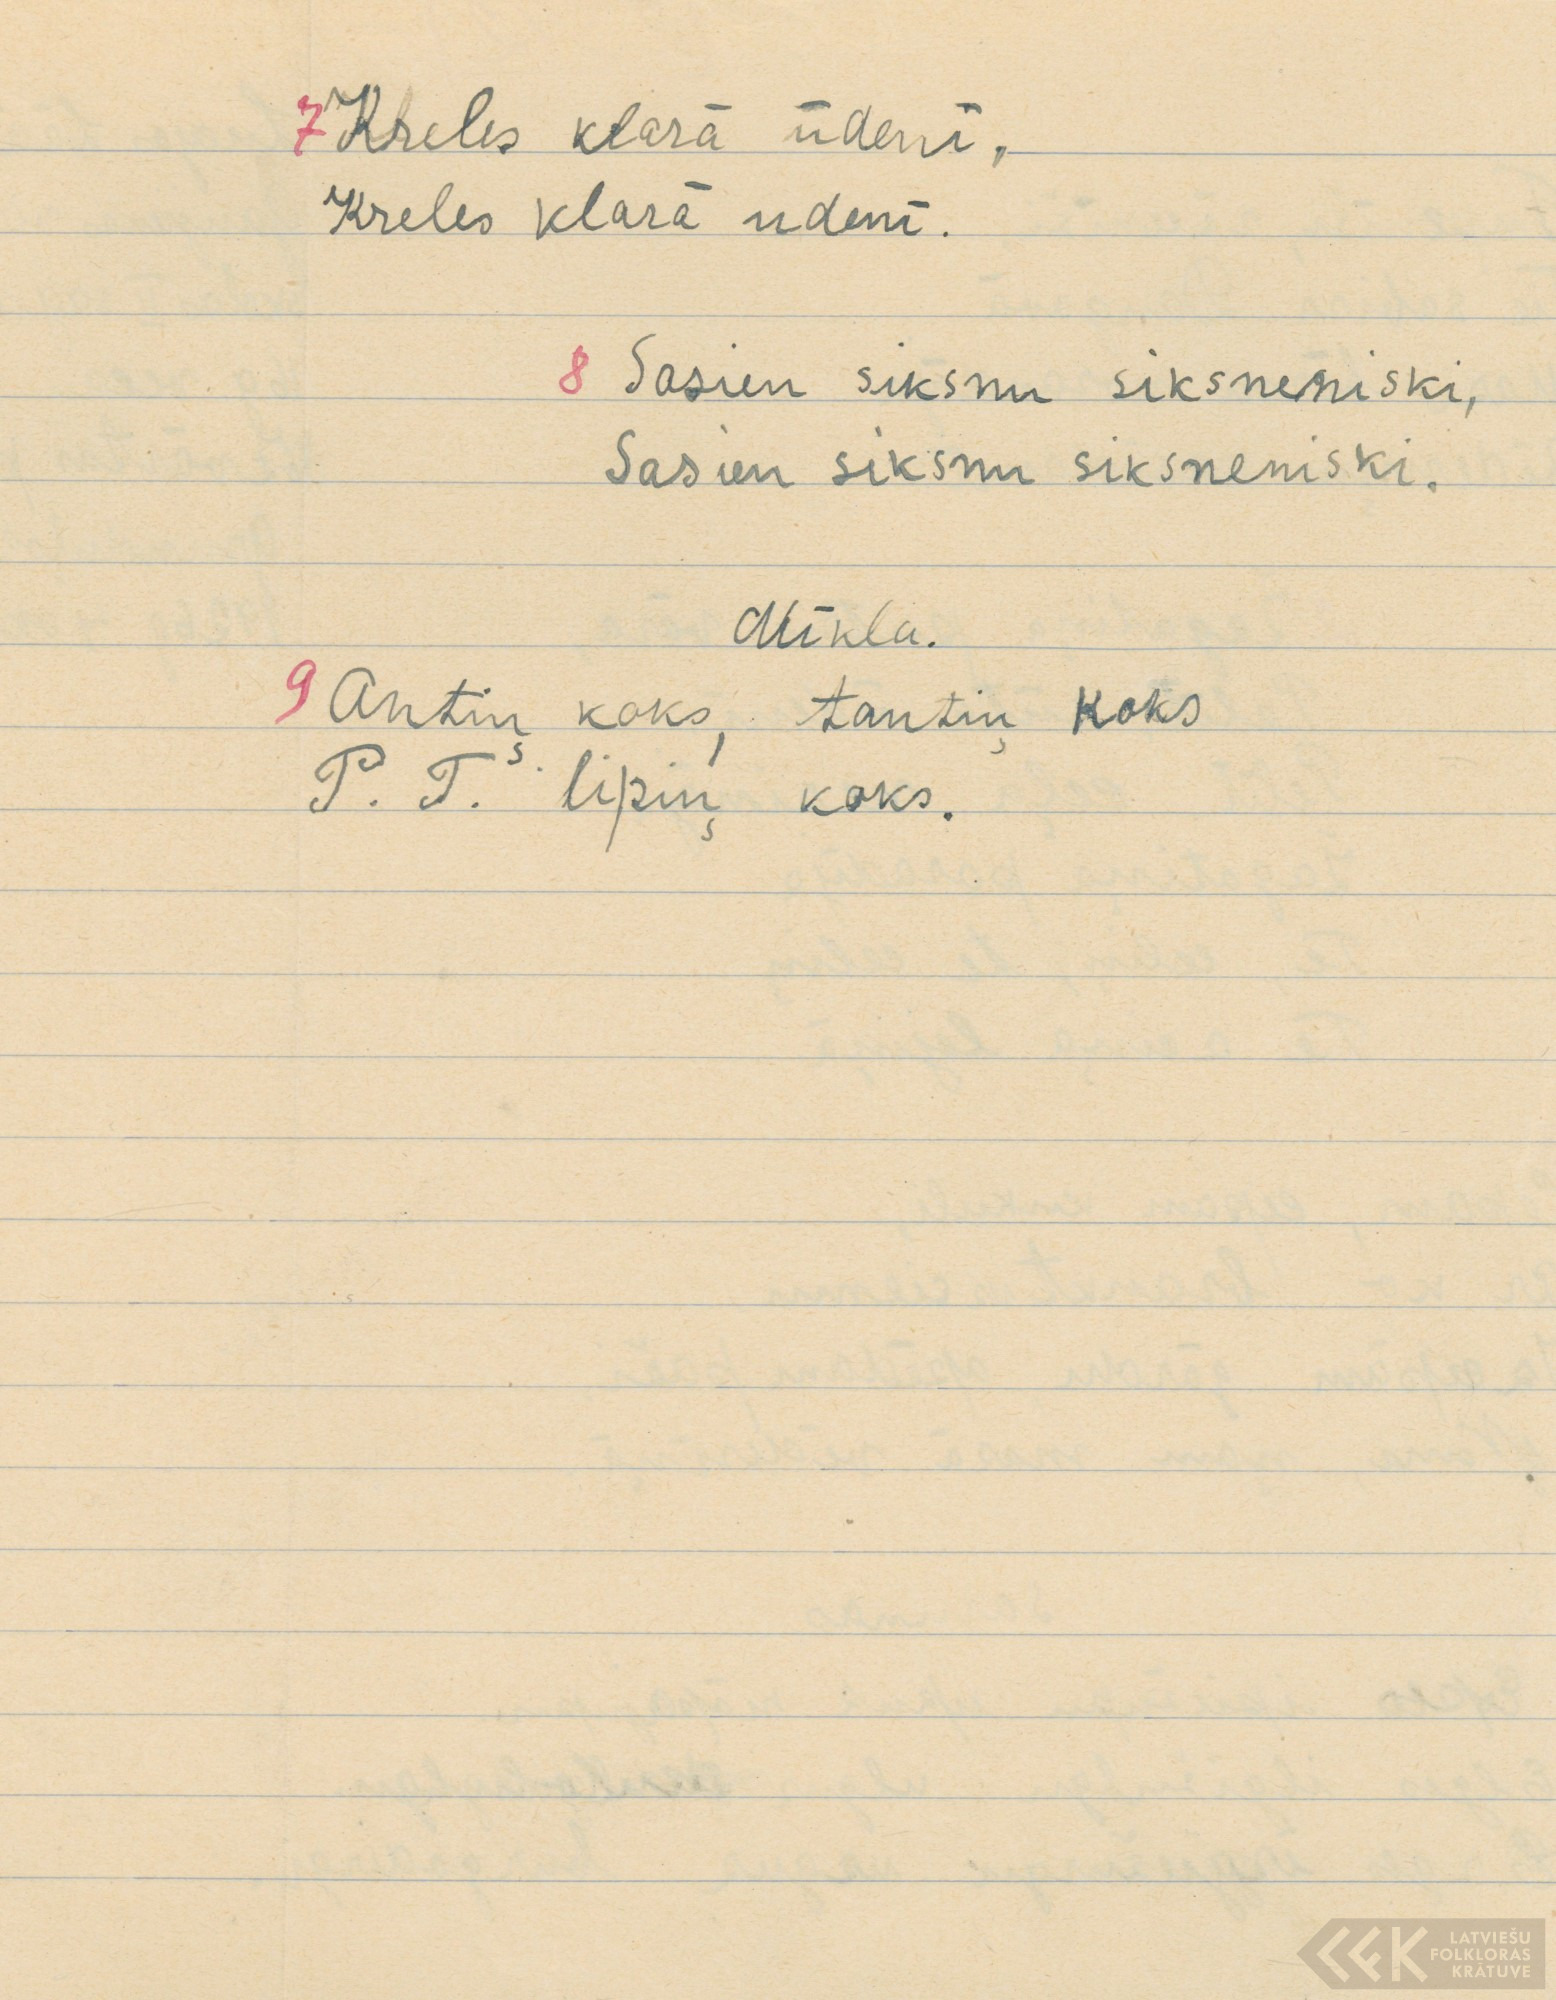 7 Kreles klarā ūdenī,
Kreles klarā udenī.
8 Sasien siksnu siksneniski,
Sasien siksnu siksneniski.
Mīkla.
9 Antiņ koks, tantiņ koks
P. T. lipiņ koks.
LATVIEŠU
FOLKLORAS
KRĀTUVE